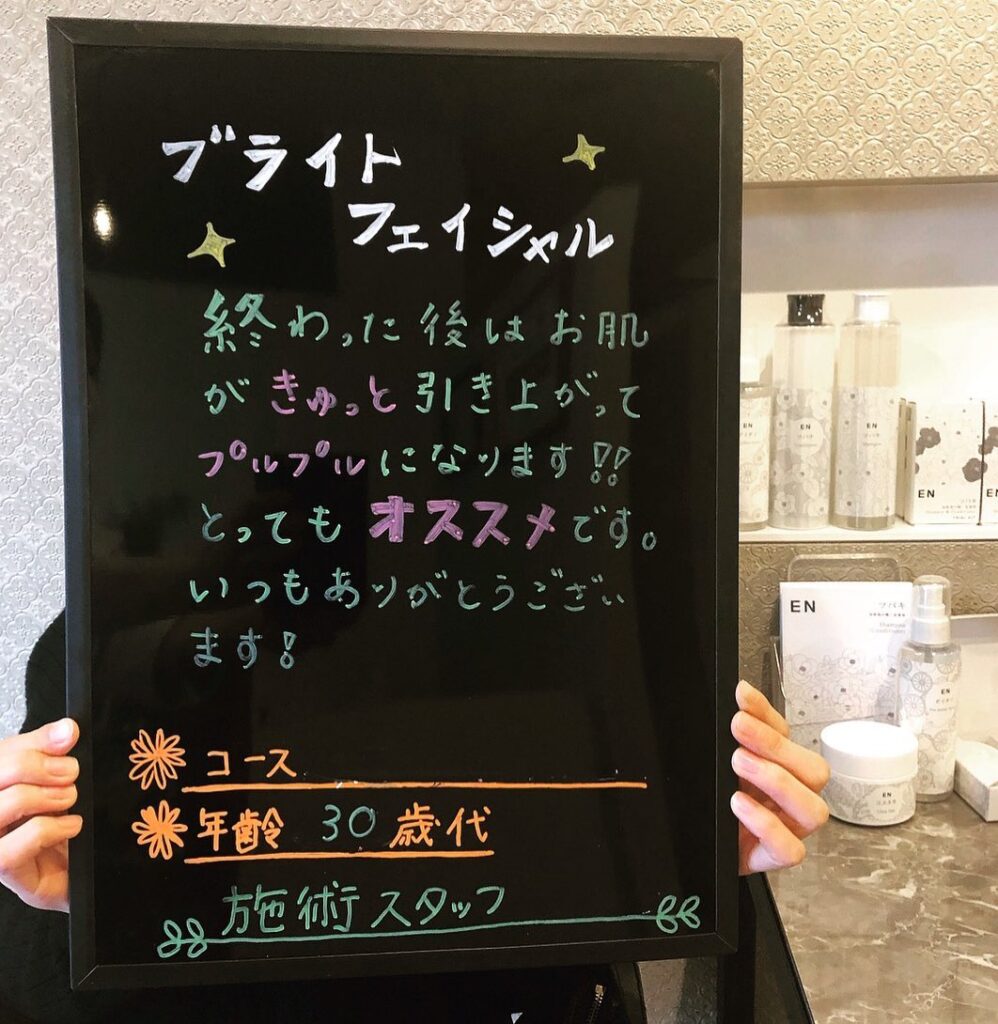 ブライト
フェイシャル
終わった後はお肌
がきゅっと引き上がって
プルプルになります!!
とってもオススメです。
いつもありがとうござい
ます!
コース
年齢 30 歳代
施術スタッフ
EN
EN
ツバキ
EN
ツバキ
EN
EN
EN
ツバキ
Shampoo
EN
EN